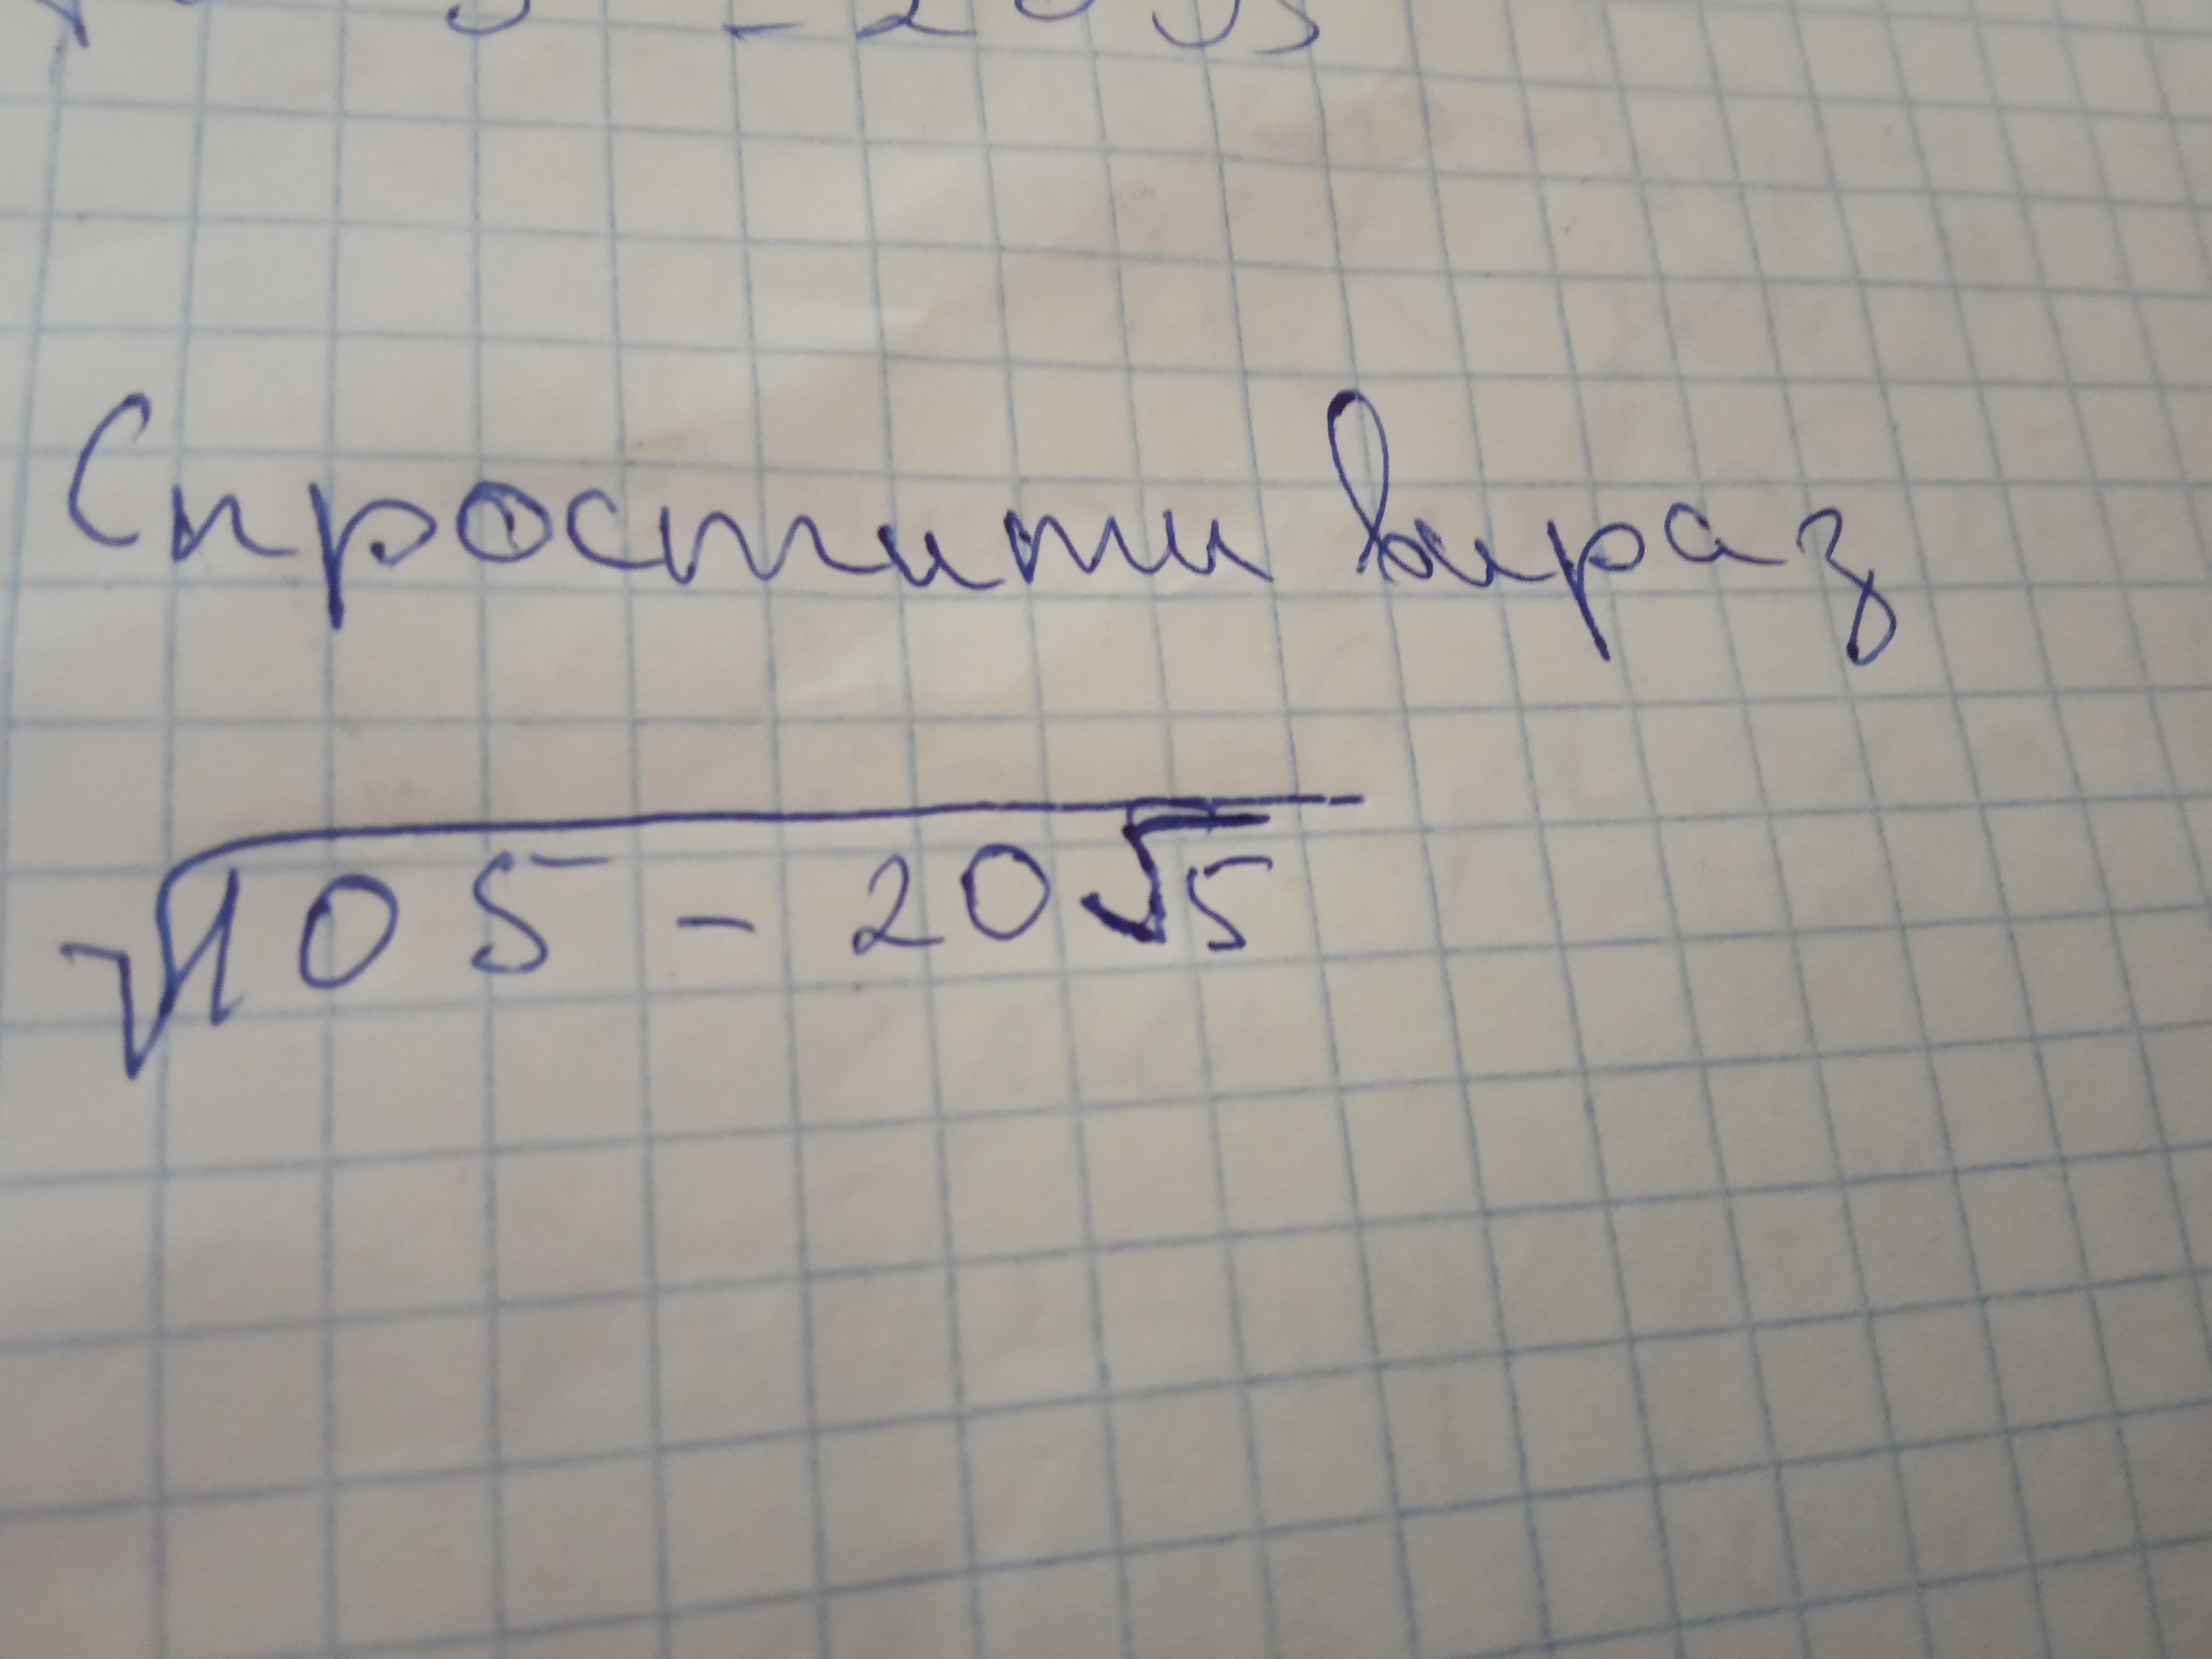 - 20√5
Спростити вираз
√105 - 20√5